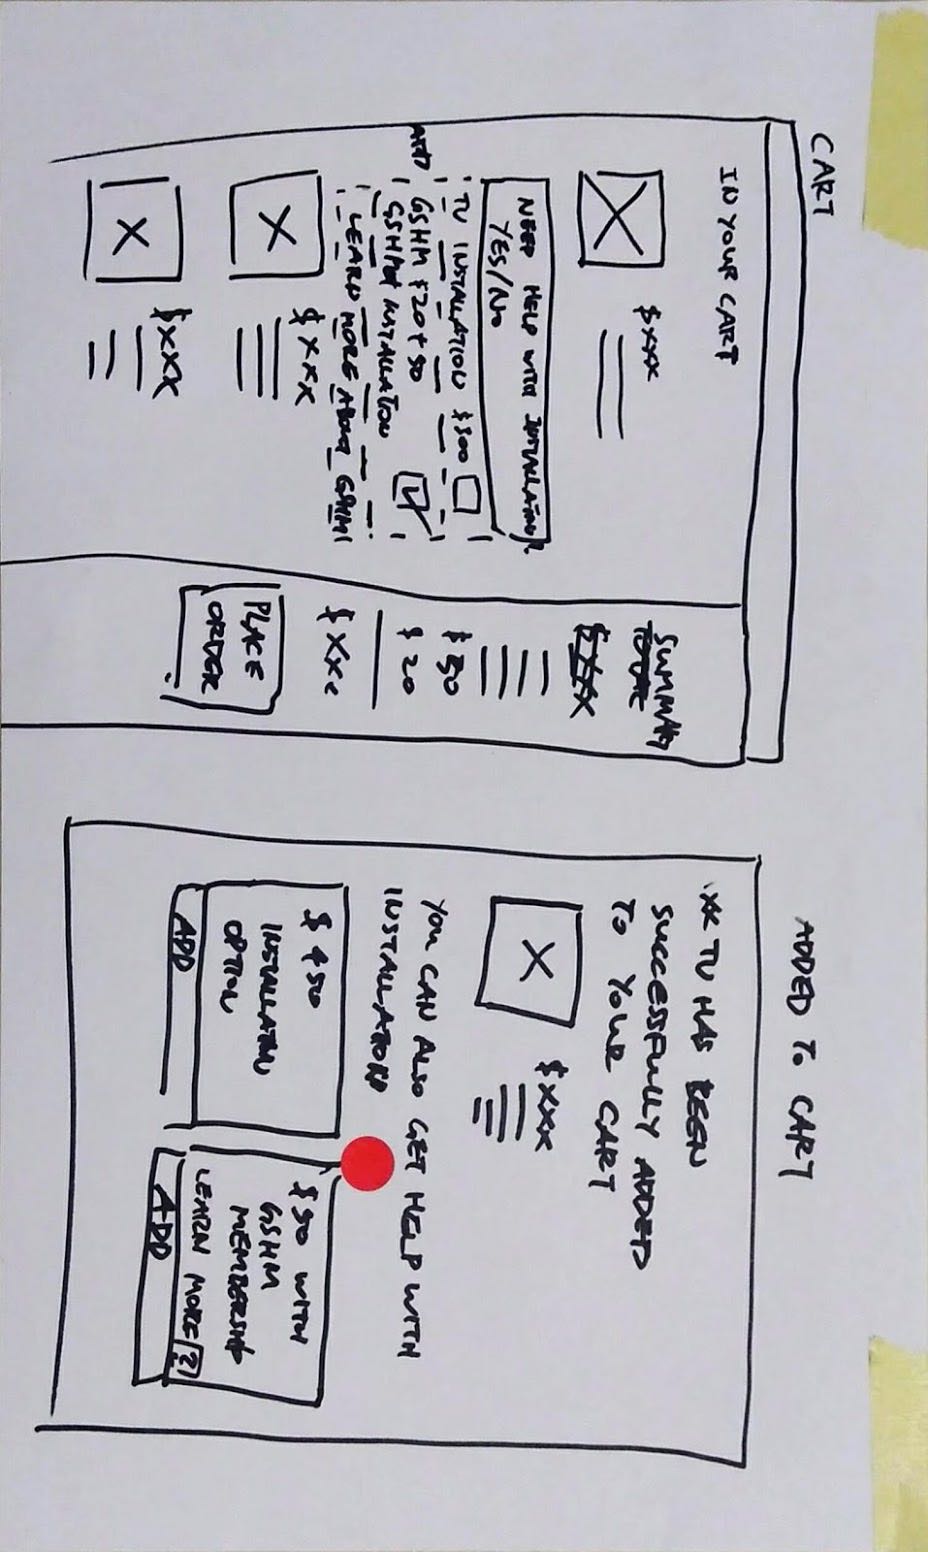 CART
IN YOUR CART
$XXX
NEED HELP WITH INSTALLATION?
YES/NO
TV INSTALLATION $500
ADD
GSHM $20 + 50
INSTALLATION
LEARN MORE ABOUT GSHM
$XXX
$XXX
SUMMARY
$XXX
$50
$20
$XXX
PLACE
ORDER
ADDED TO CART
TV HAS BEEN
SUCCESSFULLY ADDED
TO YOUR CART
X
$XXX
YOU CAN ALSO GET HELP WITH
INSTALLATION
$450
INSTALLATION
OPTION
ADD
$50 WITH
GSHM
MEMBERSHIP
LEARN MORE [?]
ADD